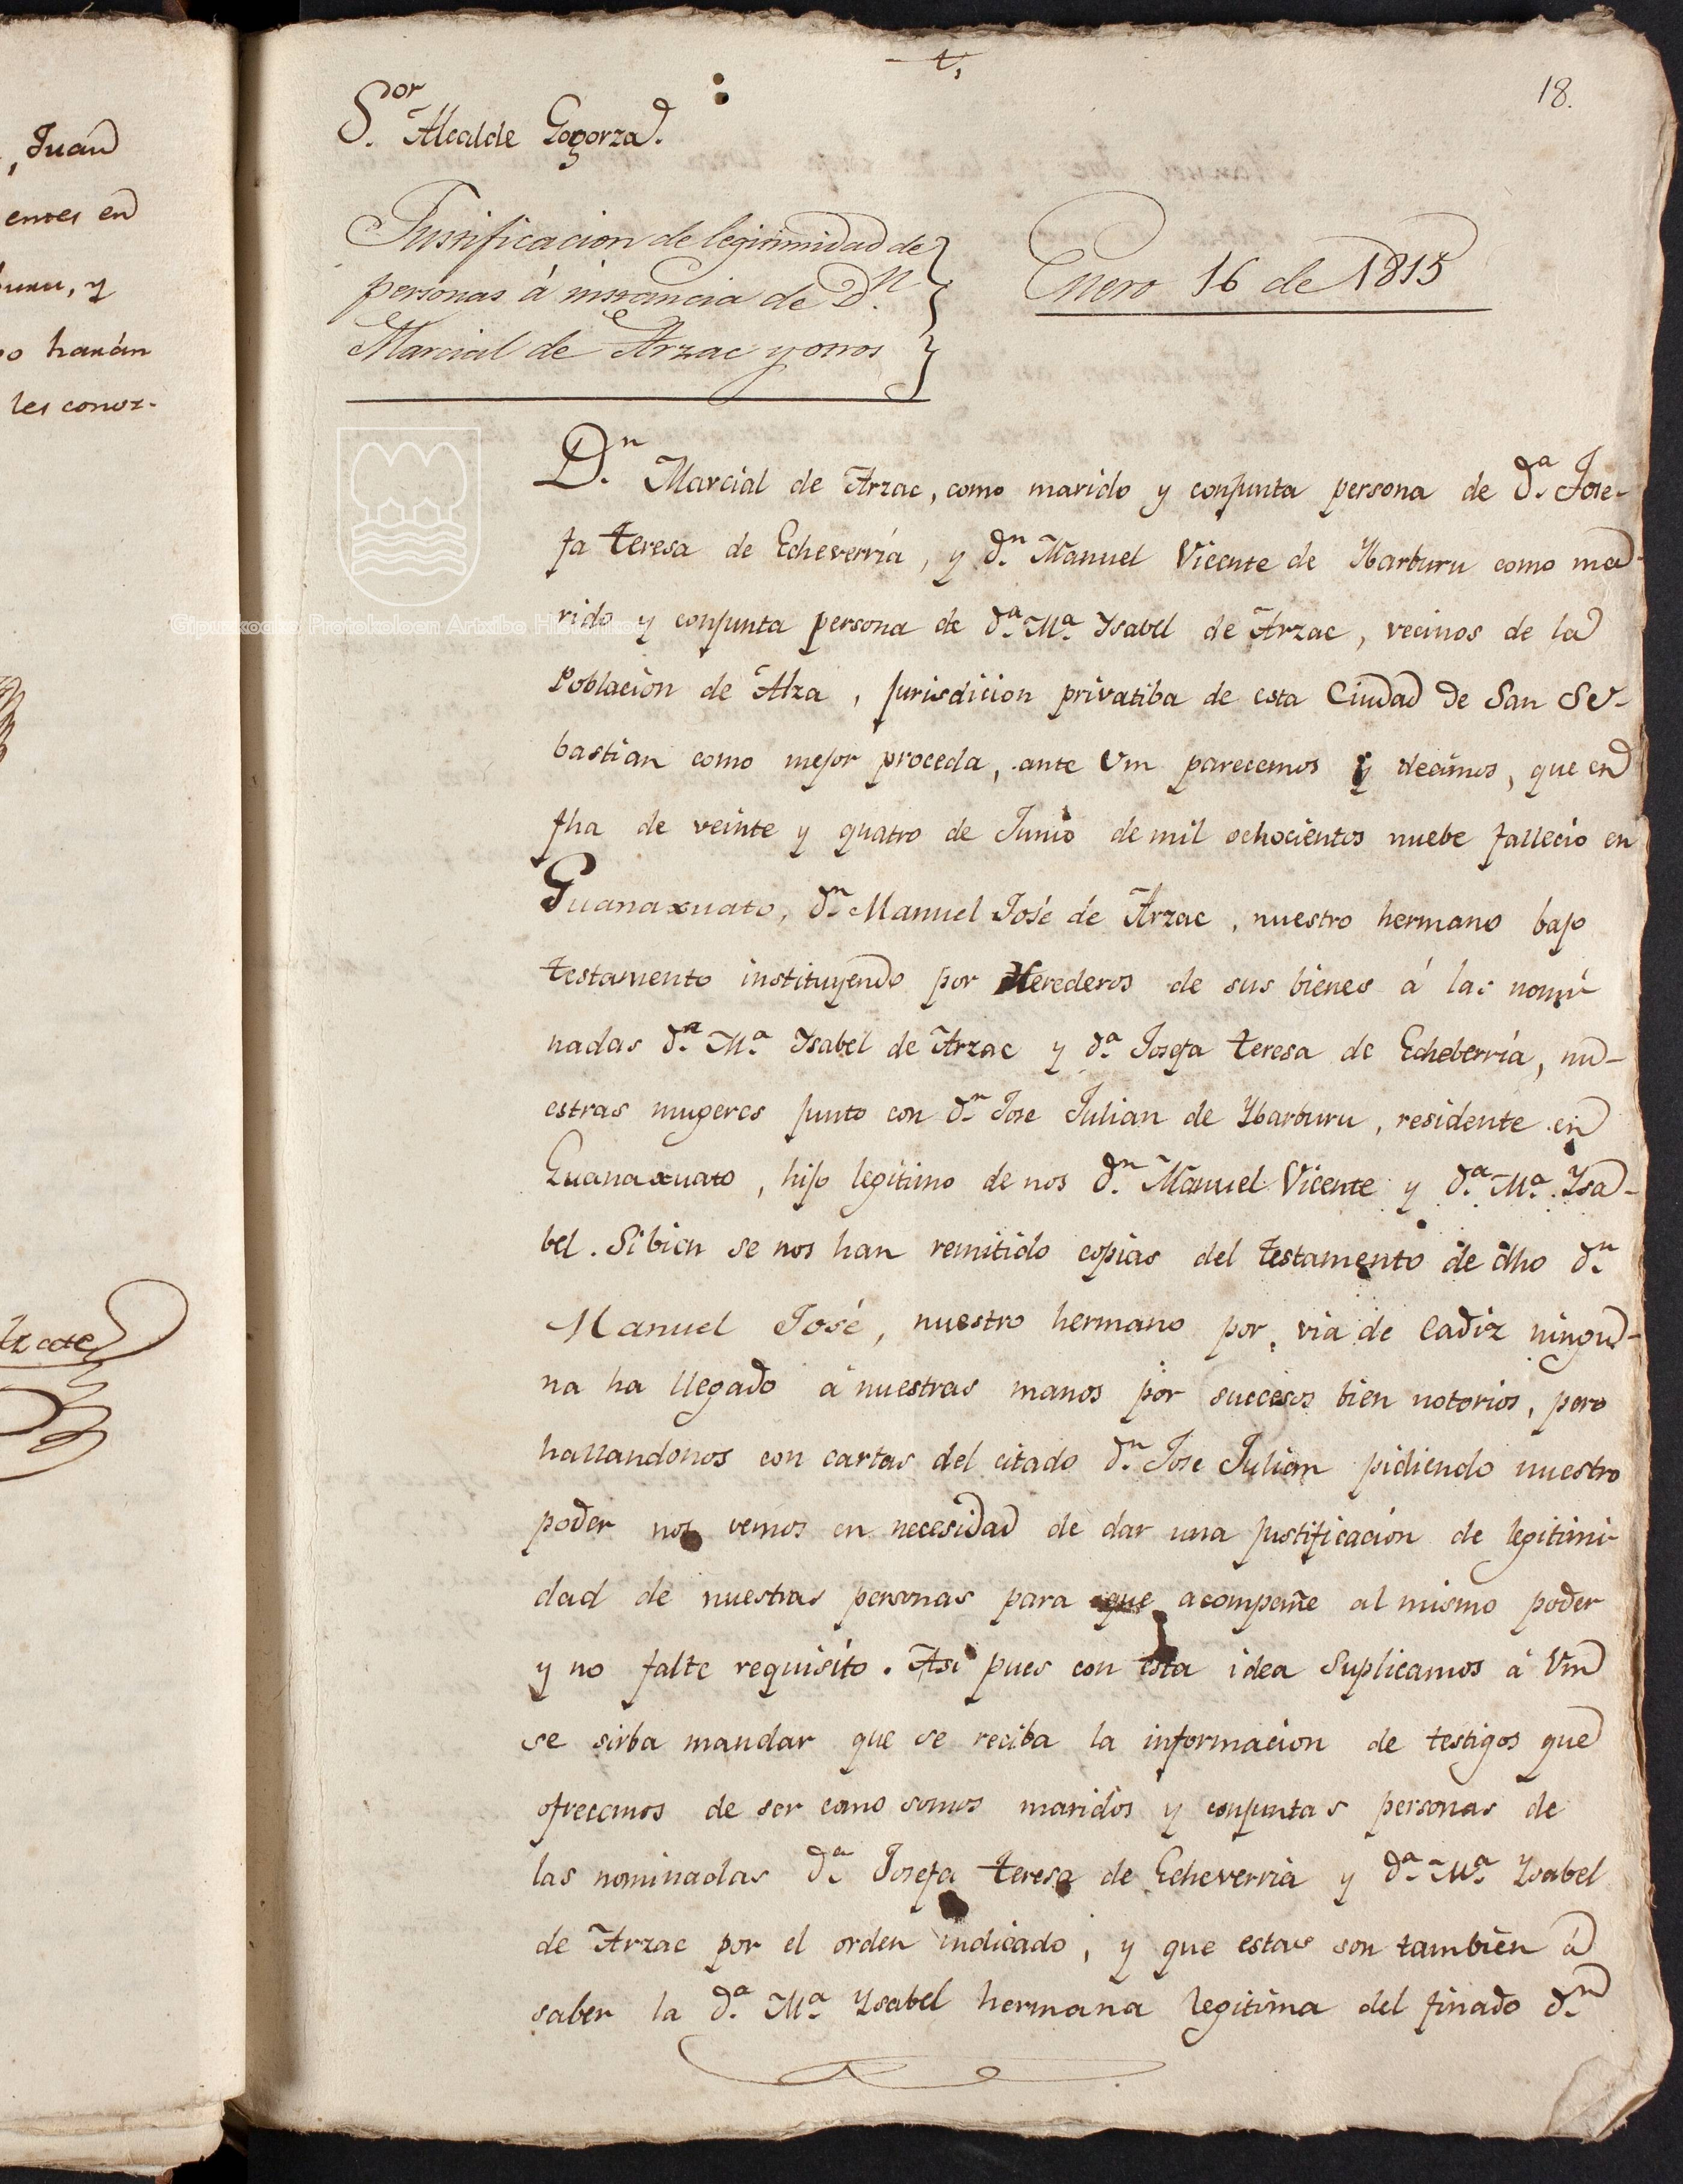 , Juan
entes en
buru, y
po harán
les conoz-
t,
18.
S.or Alcalde Gogorza.
Justificacion de legitimidad de
personas á instancia de D.n
Marcial de Arzac y otros
Enero 16 de 1815
D.n Marcial de Arzac, como marido y conjunta persona de d.a Jose-
fa teresa de Echeverría, y d.n Manuel Vicente de Ybarburu como ma-
rido y conjunta persona de d.a M.a Ysabel de Arzac, vecinos de la
Poblacion de Alza, jurisdicion privatiba de esta Ciudad de San Se-
bastian como mejor proceda, ante Vm parecemos y decimos, que en
fha de veinte y quatro de Junio de mil ochocientos nuebe fallecio en
Guanaxuato, d.n Manuel José de Arzac, nuestro hermano bajo
testamento instituyendo por Herederos de sus bienes á las nomi
nadas d.a M.a Ysabel de Arzac y d.a Josefa teresa de Echeberría, nu-
estras mugeres junto con d.n Jose Julian de Ybarburu, residente en
Guanaxuato, hijo legitimo de nos d.n Manuel Vicente y d.a M.a Ysa-
bel. Si bien se nos han remitido copias del testamento de dho d.n
Manuel José, nuestro hermano por via de Cadiz ningu-
na ha llegado á nuestras manos por succesos bien notorios, pero
hallandonos con cartas del citado d.n Jose Julian pidiendo nuestro
poder nos vemos en necesidad de dar una justificacion de legitimi-
dad de nuestras personas para que acompañe al mismo poder
y no falte requisito. Asi pues con esta idea Suplicamos á Vm
se sirba mandar que se reciba la informacion de testigos que
ofrecemos de ser como somos maridos y conjuntas personas de
las nominadas d.a Josefa teresa de Echeverria y d.a M.a Ysabel
de Arzac por el orden indicado, y que estas son tambien á
saber la d.a M.a Ysabel hermana legitima del finado d.n
Gipuzkoako Protokoloen Artxibo Historikoa